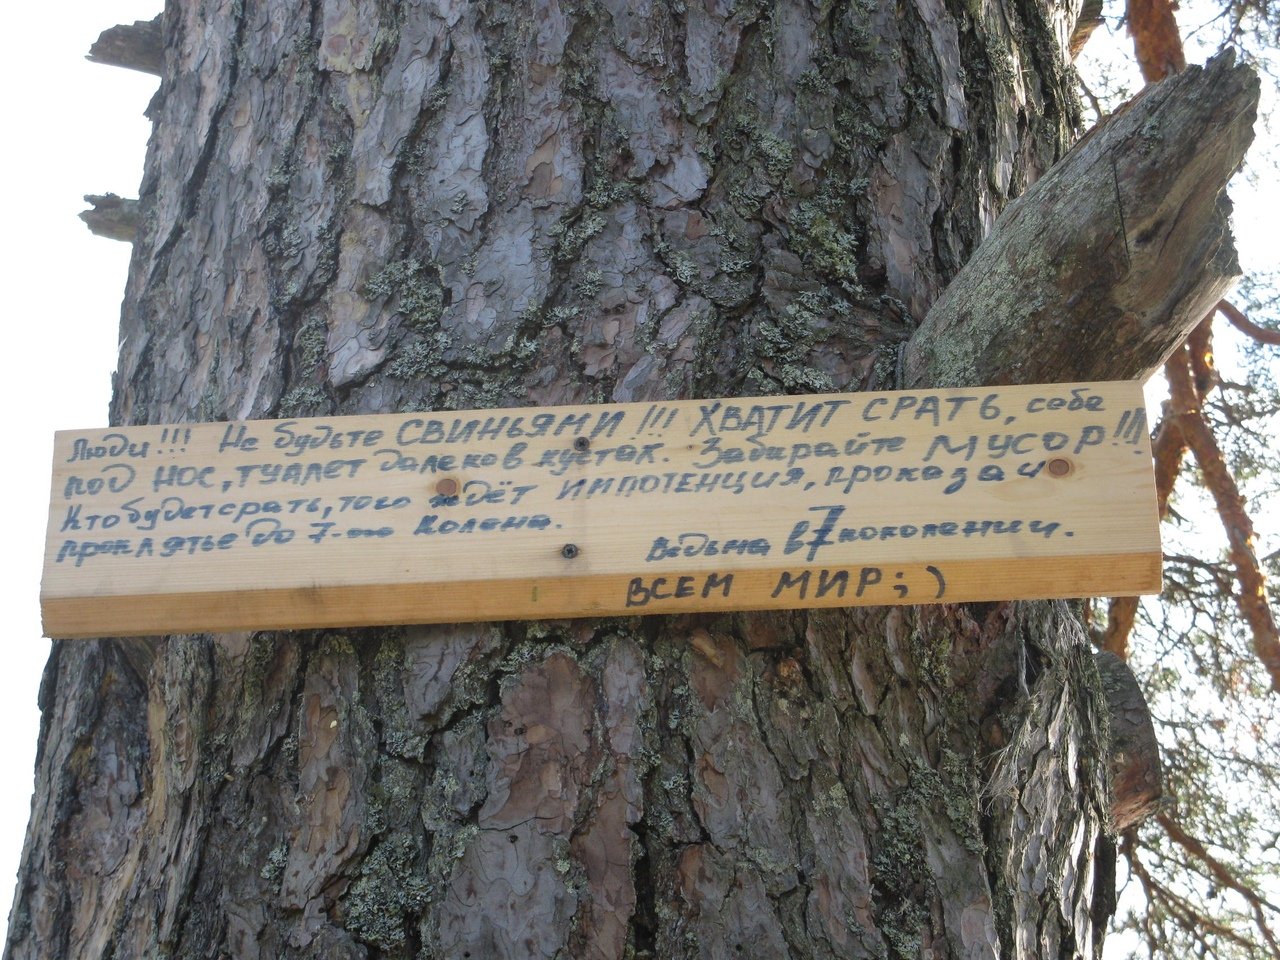 Люди!!! Не будьте СВИНЬЯМИ!!! ХВАТИТ СРАТЬ, себе
под НОС, ТУАЛЕТ далеко в кустах. Забирайте МУСОР!!!
Кто будет срать, того ждёт ИМПОТЕНЦИЯ, проказа и
проклятье до 7-го колена.
Ведьма в 7 поколении.
ВСЕМ МИР ;)